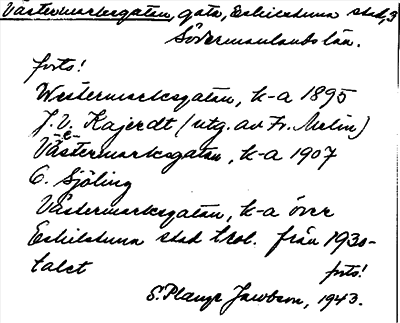 Västermarksgatan, gata, Eskilstuna stad, 3
Södermanlands län.
forts!
Westermarksgatan, k-a 1895
J. V. Kajerdt (utg. av Fr. Melin)
Västermarksgatan, k-a 1907
C. Sjöling
Västermarksgatan, k-a över
Eskilstuna stad tkol. från 1930-
talet forts!
S. Plange Jacobson, 1943.